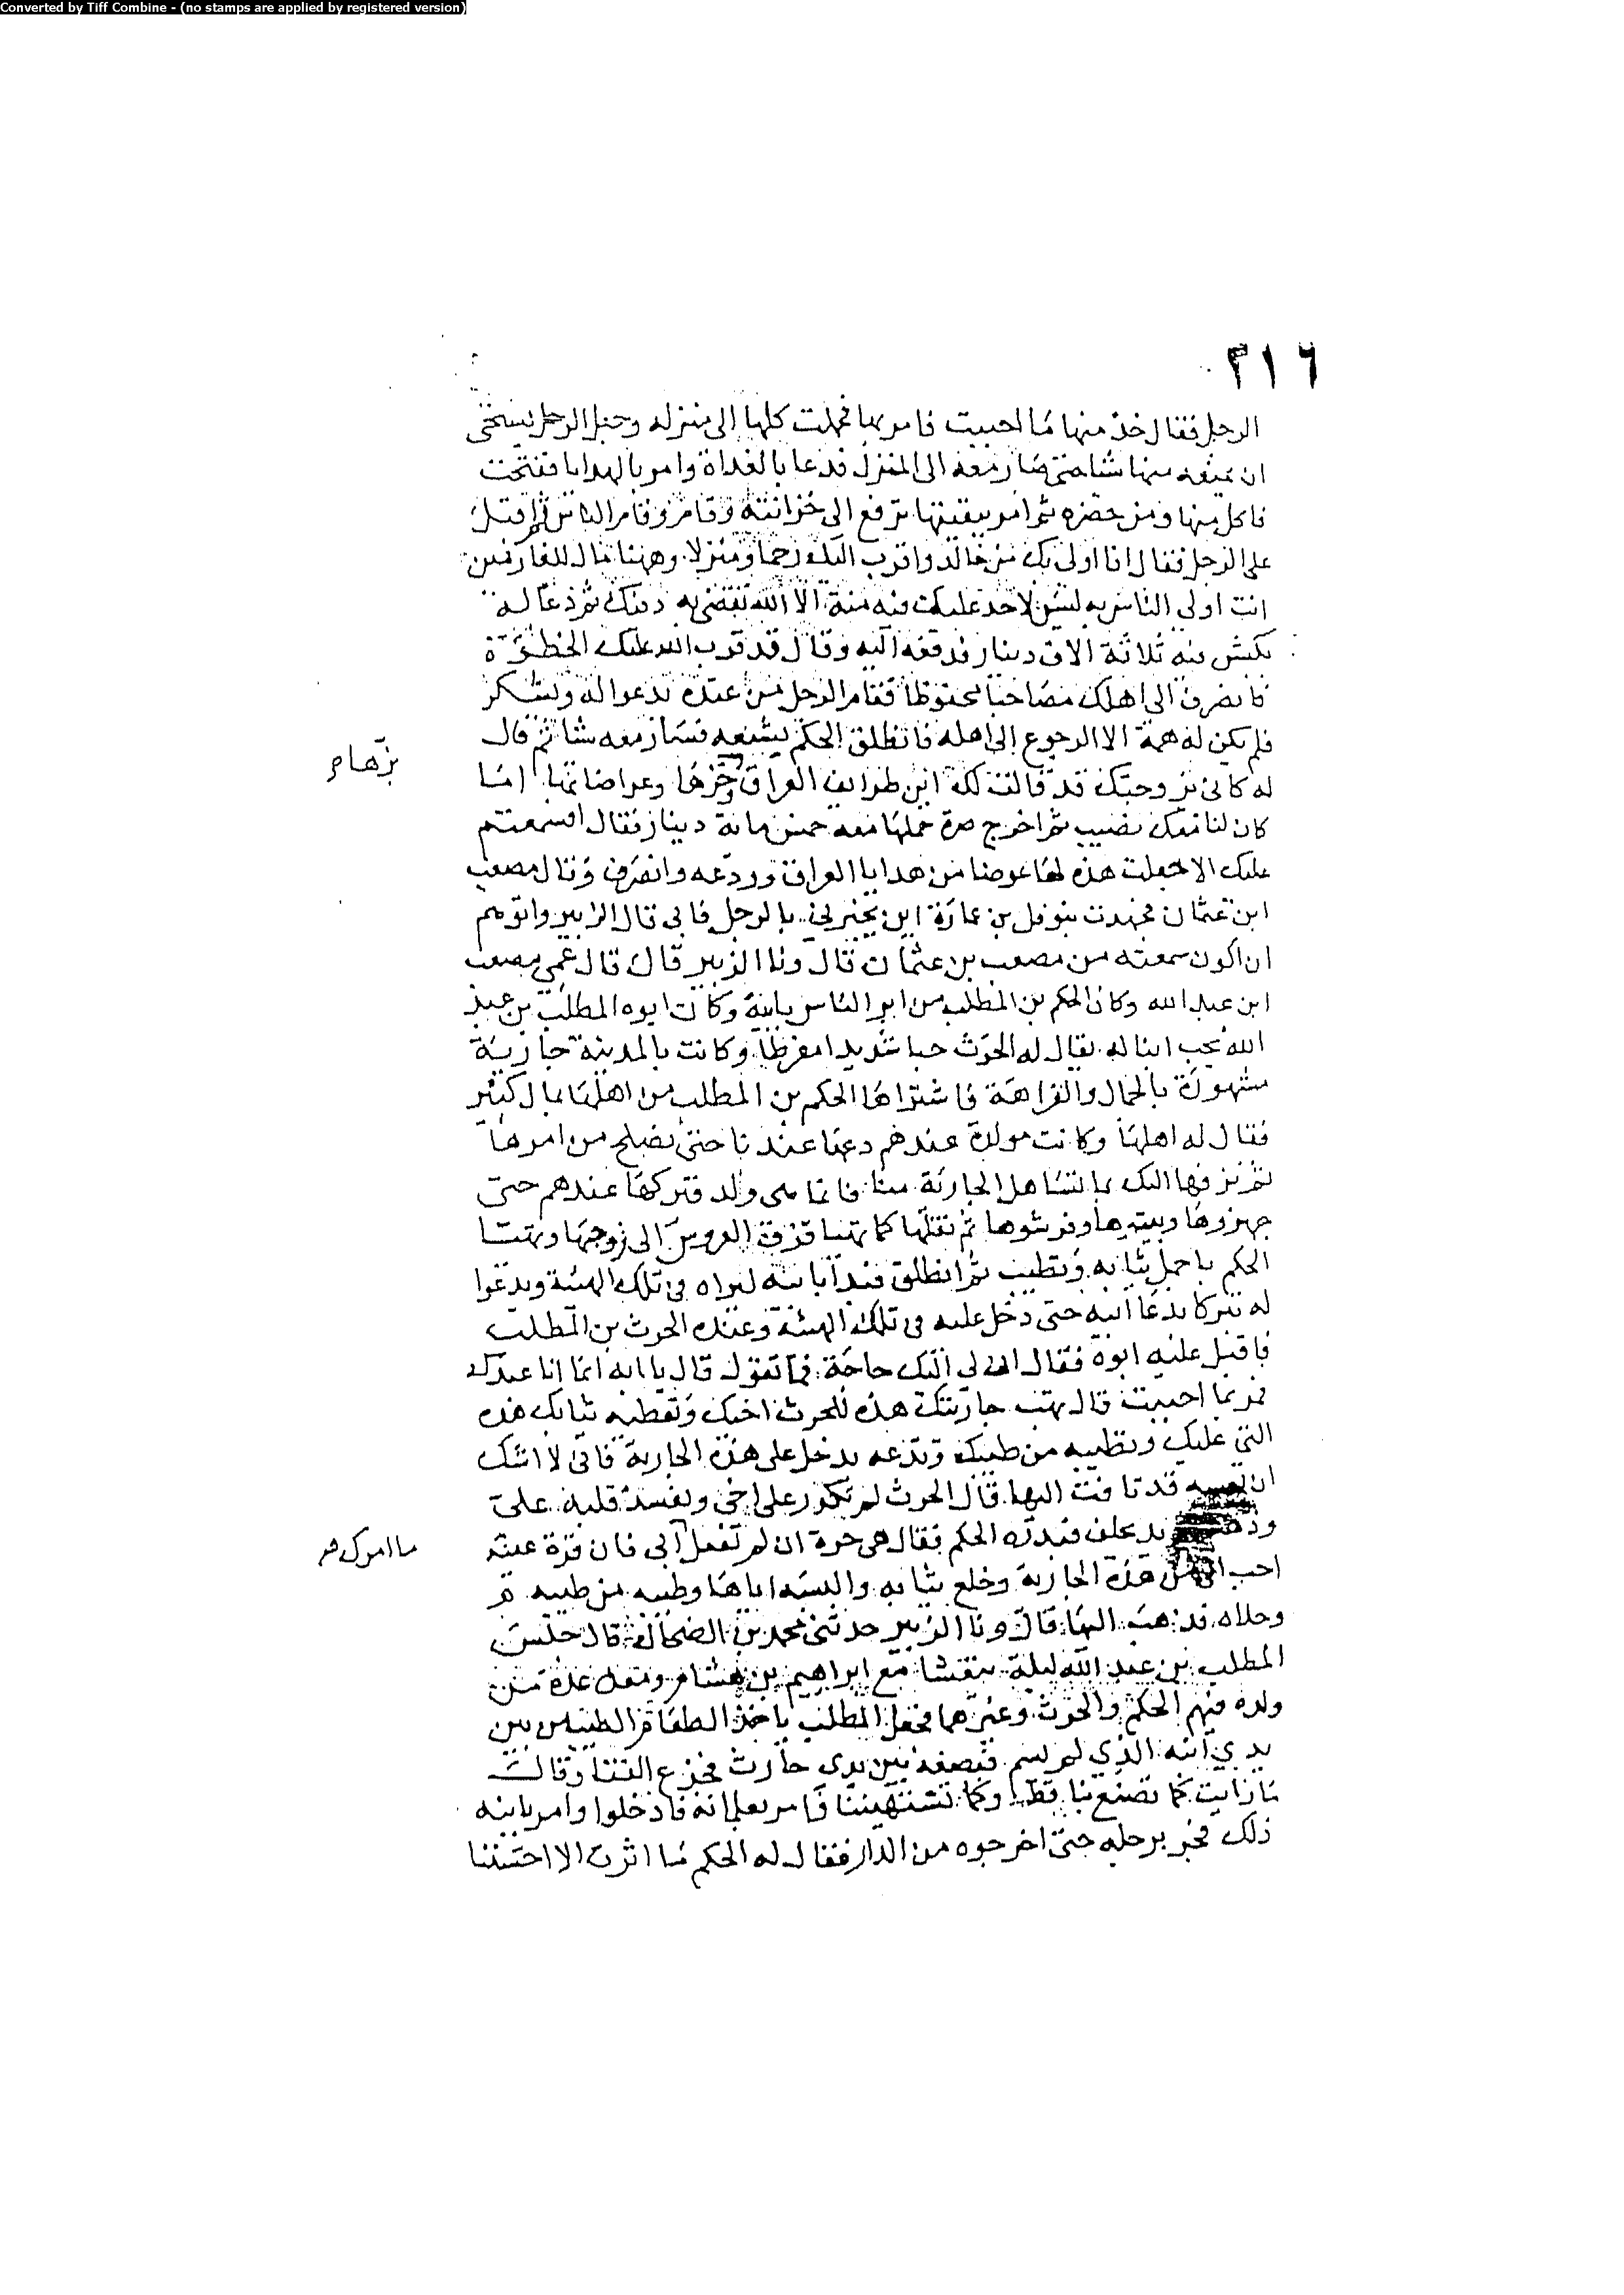 Converted by Tiff Combine - (no stamps are applied by registered version)
٣١٦
الرجل فقال خذ منها ما احببت فامر بها فحملت كلها الى منزله وجعل الرجل يستحي
ان يمنعه منها شيا حتى صار معه الى المنزل فدعا بالغداة وامر بالهدايا ففتحت
فاكل منها ومن حضره ثم امر ببقيتها ترفع الى خزانته وقام وقام الناس ثم اقبل
على الرجل فقال انا اولى بك من خالد واقرب اليك رحما ومنزلا وههنا مال للغارمين
انت اولى الناس به ليس لاحد عليك فيه منة الا الله تقضي به دينك ثم دعا له
بكيس فيه ثلاثة الاف دينار فدفعه اليه وقال قد قرب الله عليك الخطوة
فانصرف الى اهلك مصاحبا محفوظا فقام الرجل من عنده يدعوا له ويشكر
فلم يكن له همة الا الرجوع الى اهله فانطلق الحكم يشيعه فسار معه شيا ثم قال
له كاني بزوجتك قد قالت لك اين طرايف العراق وخزها وعراضاتها اما
بزها م
كان لنا معك نصيب ثم اخرج صرة حملها معه خمس ماية دينار فقال اقسمت
عليك الا جعلت هذه لها عوضا من هدايا العراق وودعه وانصرف وقال مصعب
ابن عثمان فجهدت بنوفل بن عمارة ان يخبرني بالرجل فابى قال الزبير واتوهم
ان اكون سمعته من مصعب بن عثمان قال ونا الزبير قال قال عمي مصعب
ابن عبد الله وكان الحكم بن المطلب من ابر الناس بابيه وكان ابوه المطلب بن عبد
الله يحب ابنا له يقال له الحرث حبا شديدا مفرطا وكانت بالمدينة جارية
مشهورة بالجمال والفراهة فاشتراها الحكم بن المطلب من اهلها بمال كثير
فقال له اهلها وكانت مولدة عندهم دعها عندنا حتى نصلح من امرها
ثم نزفها اليك بما تستاهل الجارية منا فانما هي ولد فتركها عندهم حتى
جهزوها وبيتوها وفرشوها ثم نقلها كما تهيا تزف العروس الى زوجها وتهيا
الحكم باجمل ثيابه وتطيب ثم انطلق فبدا بابيه ليراه في تلك الهيئة ويدعوا
له تبركا بدعا ابيه حتى دخل عليه في تلك الهيئة وعنده الحرث بن المطلب
فاقبل عليه ابوه فقال ان لي اليك حاجة فما تقول قال يا ابه انما انا عبدك
فمر بما احببت قال تهب جاريتك هذه للحرث اخيك وتعطيه ثيابك هذه
التي عليك وتطيبه من طيبك وتدعه يدخل على هذه الجارية فاني لا اشك
ان نفسه قد تاقت اليها قال الحرث لم تكدر على اخي وتفسد قلبه علي
وذهب يريد يحلف فبدره الحكم فقال هي حرة ان لم تفعل ابي فان قرة عينه
ما امرك م
احب الي من هذه الجارية وخلع ثيابه والبسه اياها وطيبه من طيبه
وخلاه فذهب اليها قال ونا الزبير حدثني محمد بن الضحاك قال جلس
المطلب بن عبد الله ليلة يتعشا مع ابراهيم بن هشام ومعه عدة من
ولده فيهم الحكم والحرث وغيرهما فجعل المطلب ياخذ الطعام الطيب من بين
يدي ابنه الذي لم يسم فيضعه بين يدي حارث فجزع الفتا وقال
ما رايت كما تصنع بنا قط وكما تستهيننا فامر بغلمانه فادخلوا وامر بابنه
ذلك فجر برجليه حتى اخرجوه من الدار فقال له الحكم ما اثرت الا احسننا